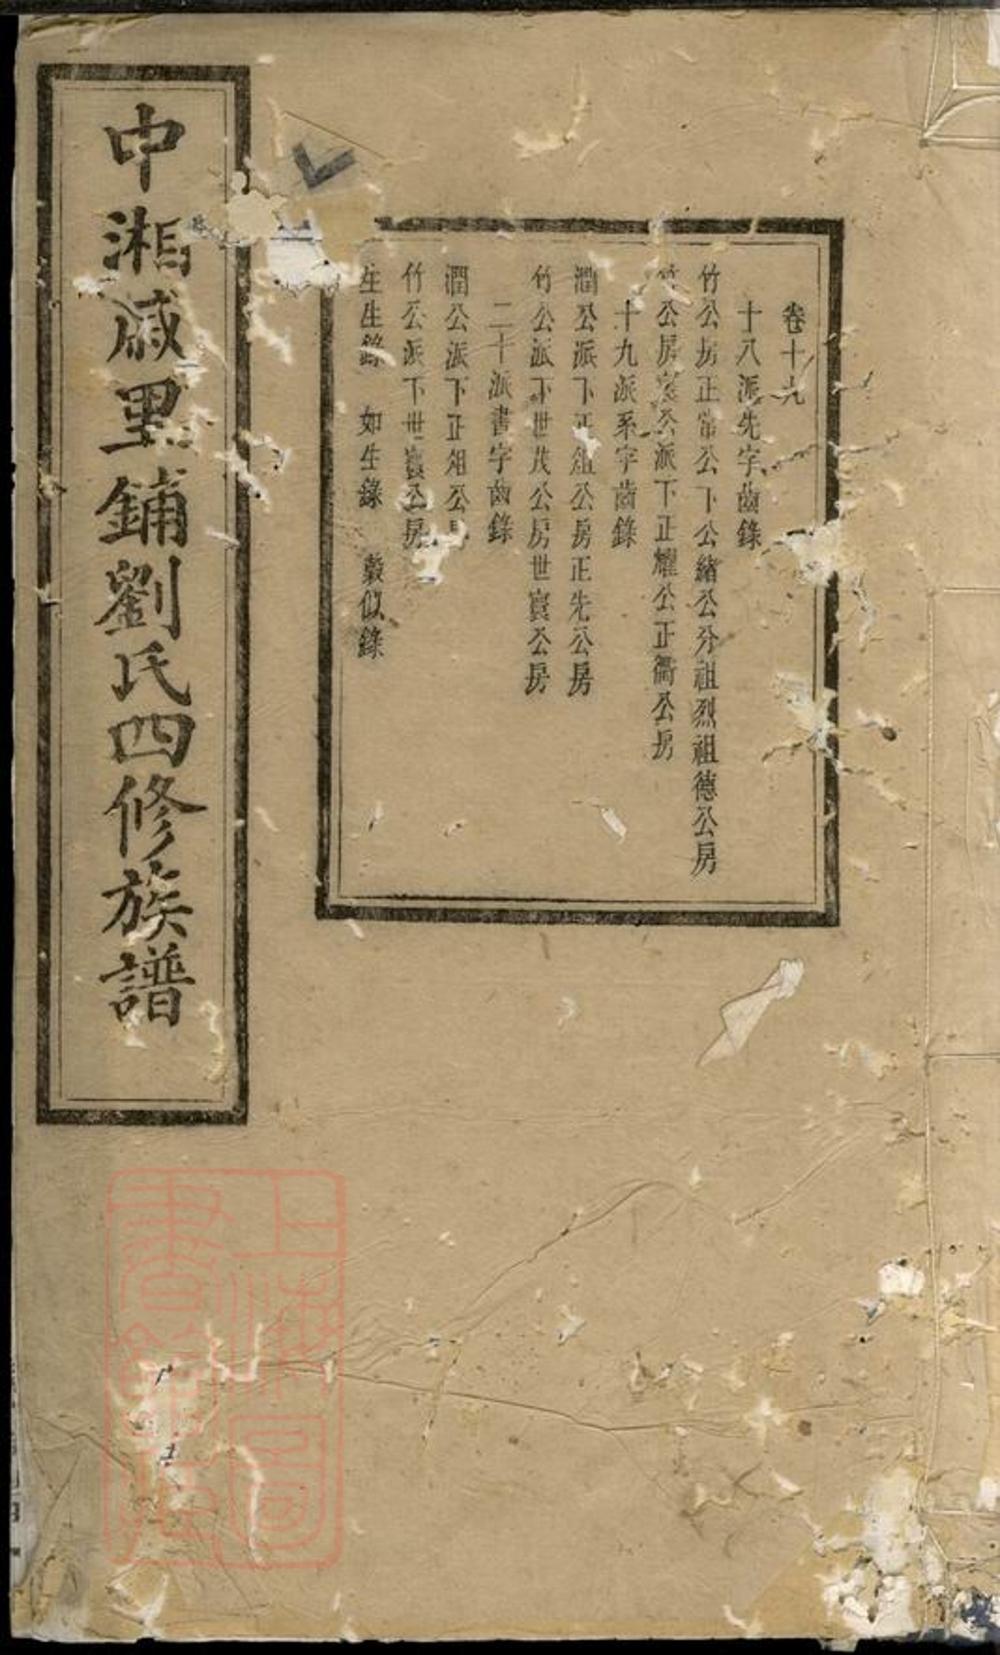 卷十九
十八派先字齒錄
竹公房正常公下公緒公分祖烈祖德公房
竹公房寔公派下正耀公正衢公房
十九派系字齒錄
潤公派下正俎公房正先公房
竹公派下世茂公房世寰公房
二十派書字齒錄
潤公派下正俎公房
竹公派下世寰公房
生生錄 如生錄 穀似錄
中湘戚里鋪劉氏四修族譜
上海圖書館藏